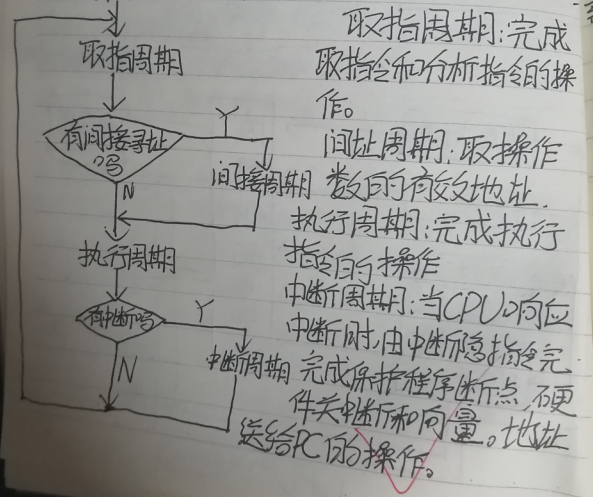 取指周期
有间接寻址
吗
Y
间接周期
N
执行周期
有中断吗
Y
中断周期
N
取指周期:完成
取指令和分析指令的操
作。
间址周期:取操作
数的有效地址.
执行周期:完成执行
指令的操作
中断周期:当CPU响应
中断时,由中断隐指令完
完成保护程序断点,硬
件关中断和向量。地址
送给PC的操作。